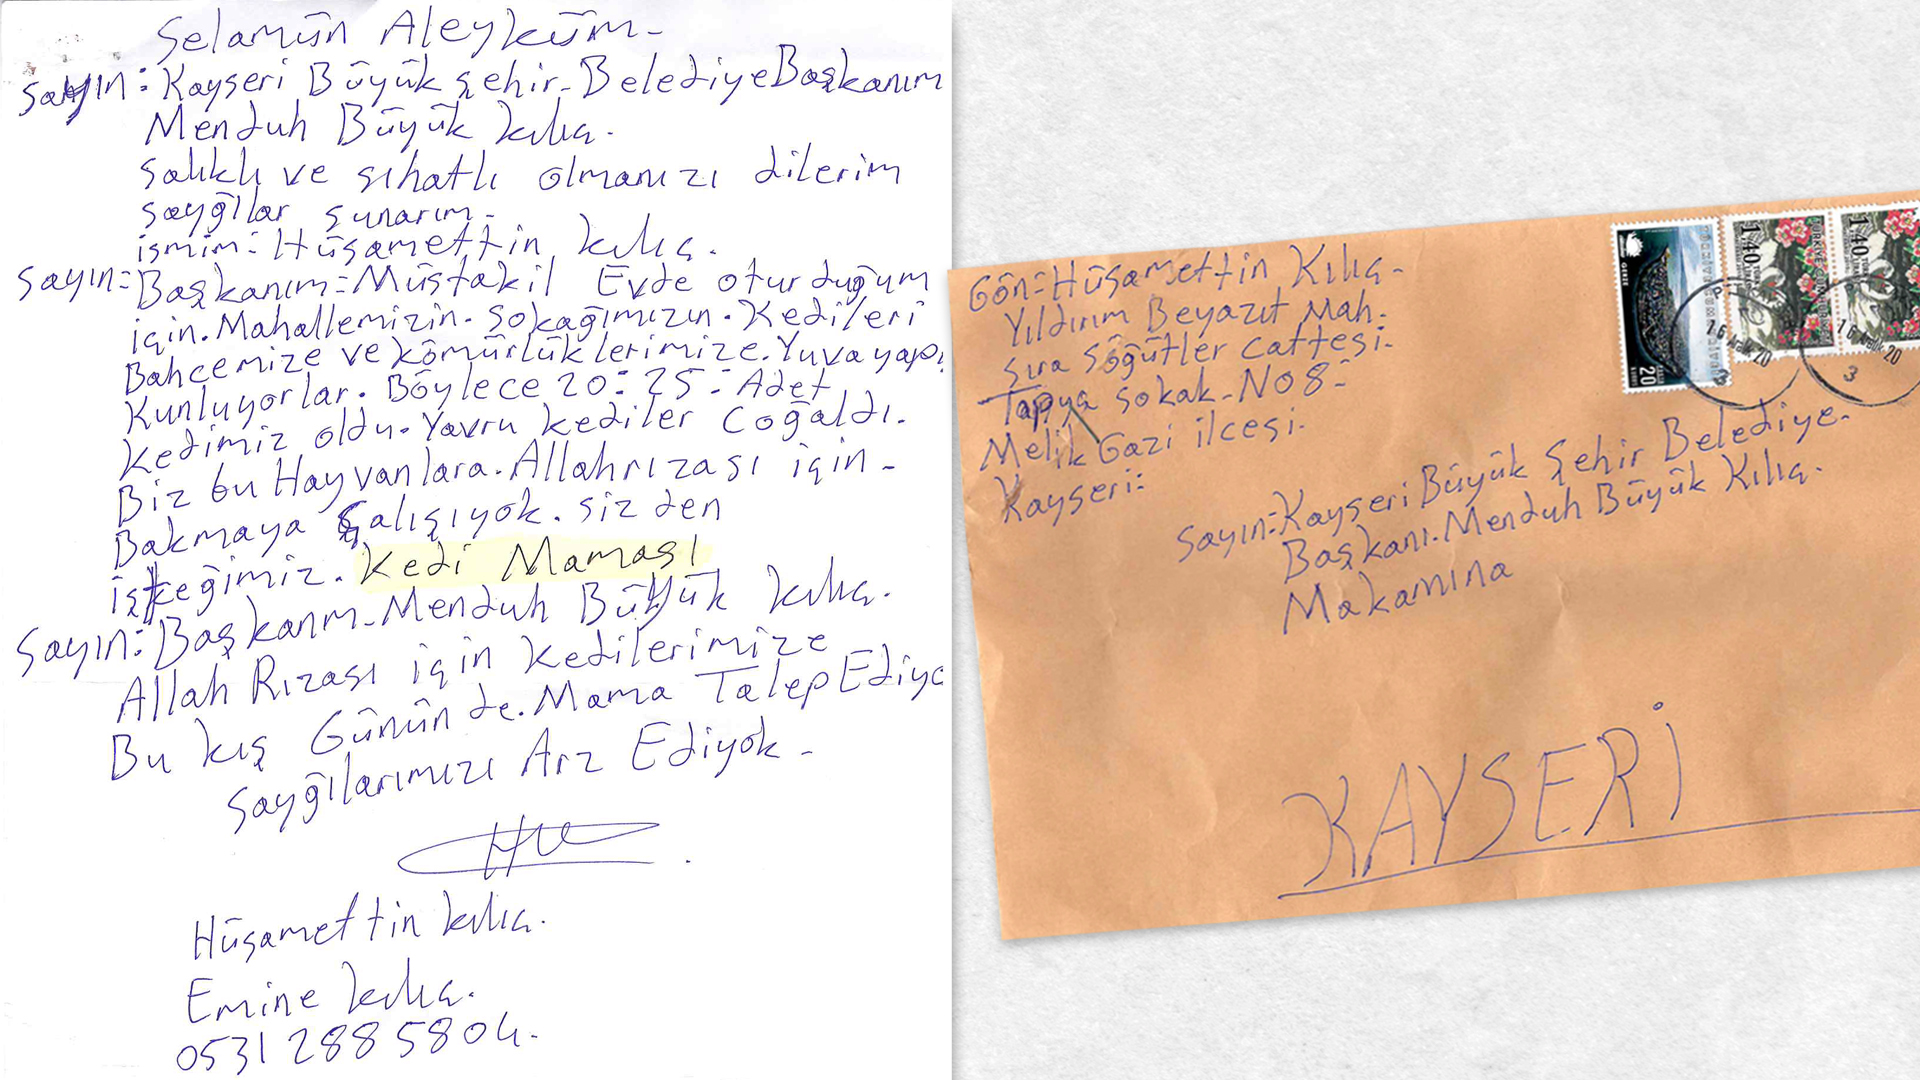 Selamün Aleyküm-
Sayın: Kayseri Büyük şehir- Belediye Başkanım
Menduh Büyük kılıç.
Salıklı ve sıhatlı olmanızı dilerim
sayğılar sunarım-
ismim: Hüsamettin kılıç.
Sayın: Başkanım= Müstakil Evde oturduğum
için. Mahallemizin. Sokağımızın. Kedileri
Bahcemize ve kömürlüklerimize. Yuva yapı
Kunluyorlar. Böylece 20: 25: Adet
Kedimiz oldu. Yavru kediler Coğaldı.
Biz bu Hayvanlara. Allah rızası için-
Bakmaya Çalışıyok. sizden
isteğimiz. Kedi Maması
Sayın: Başkanm. Menduh Büyük kılıç.
Allah Rızası için kedilerimize
Bu kış Günün de. Mama Talep Ediyo
Sayğılarımızı Arz Ediyok-
Hüsamettin kılıç.
Emine kılıç.
0531 288 58 04.
Gön=Hüsamettin Kılıç-
Yıldırım Beyazıt Mah-
Sıra Söğütler cattesi-
Tapya sokak-No 8=
Melik Gazi ilcesi.
Kayseri:
Sayın=Kayseri Büyük Şehir Belediye.
Başkanı. Menduh Büyük Kılıç.
Makamına
KAYSERİ
1.40
1.40
20
16 Aralık 20
16 Aralık 20
3